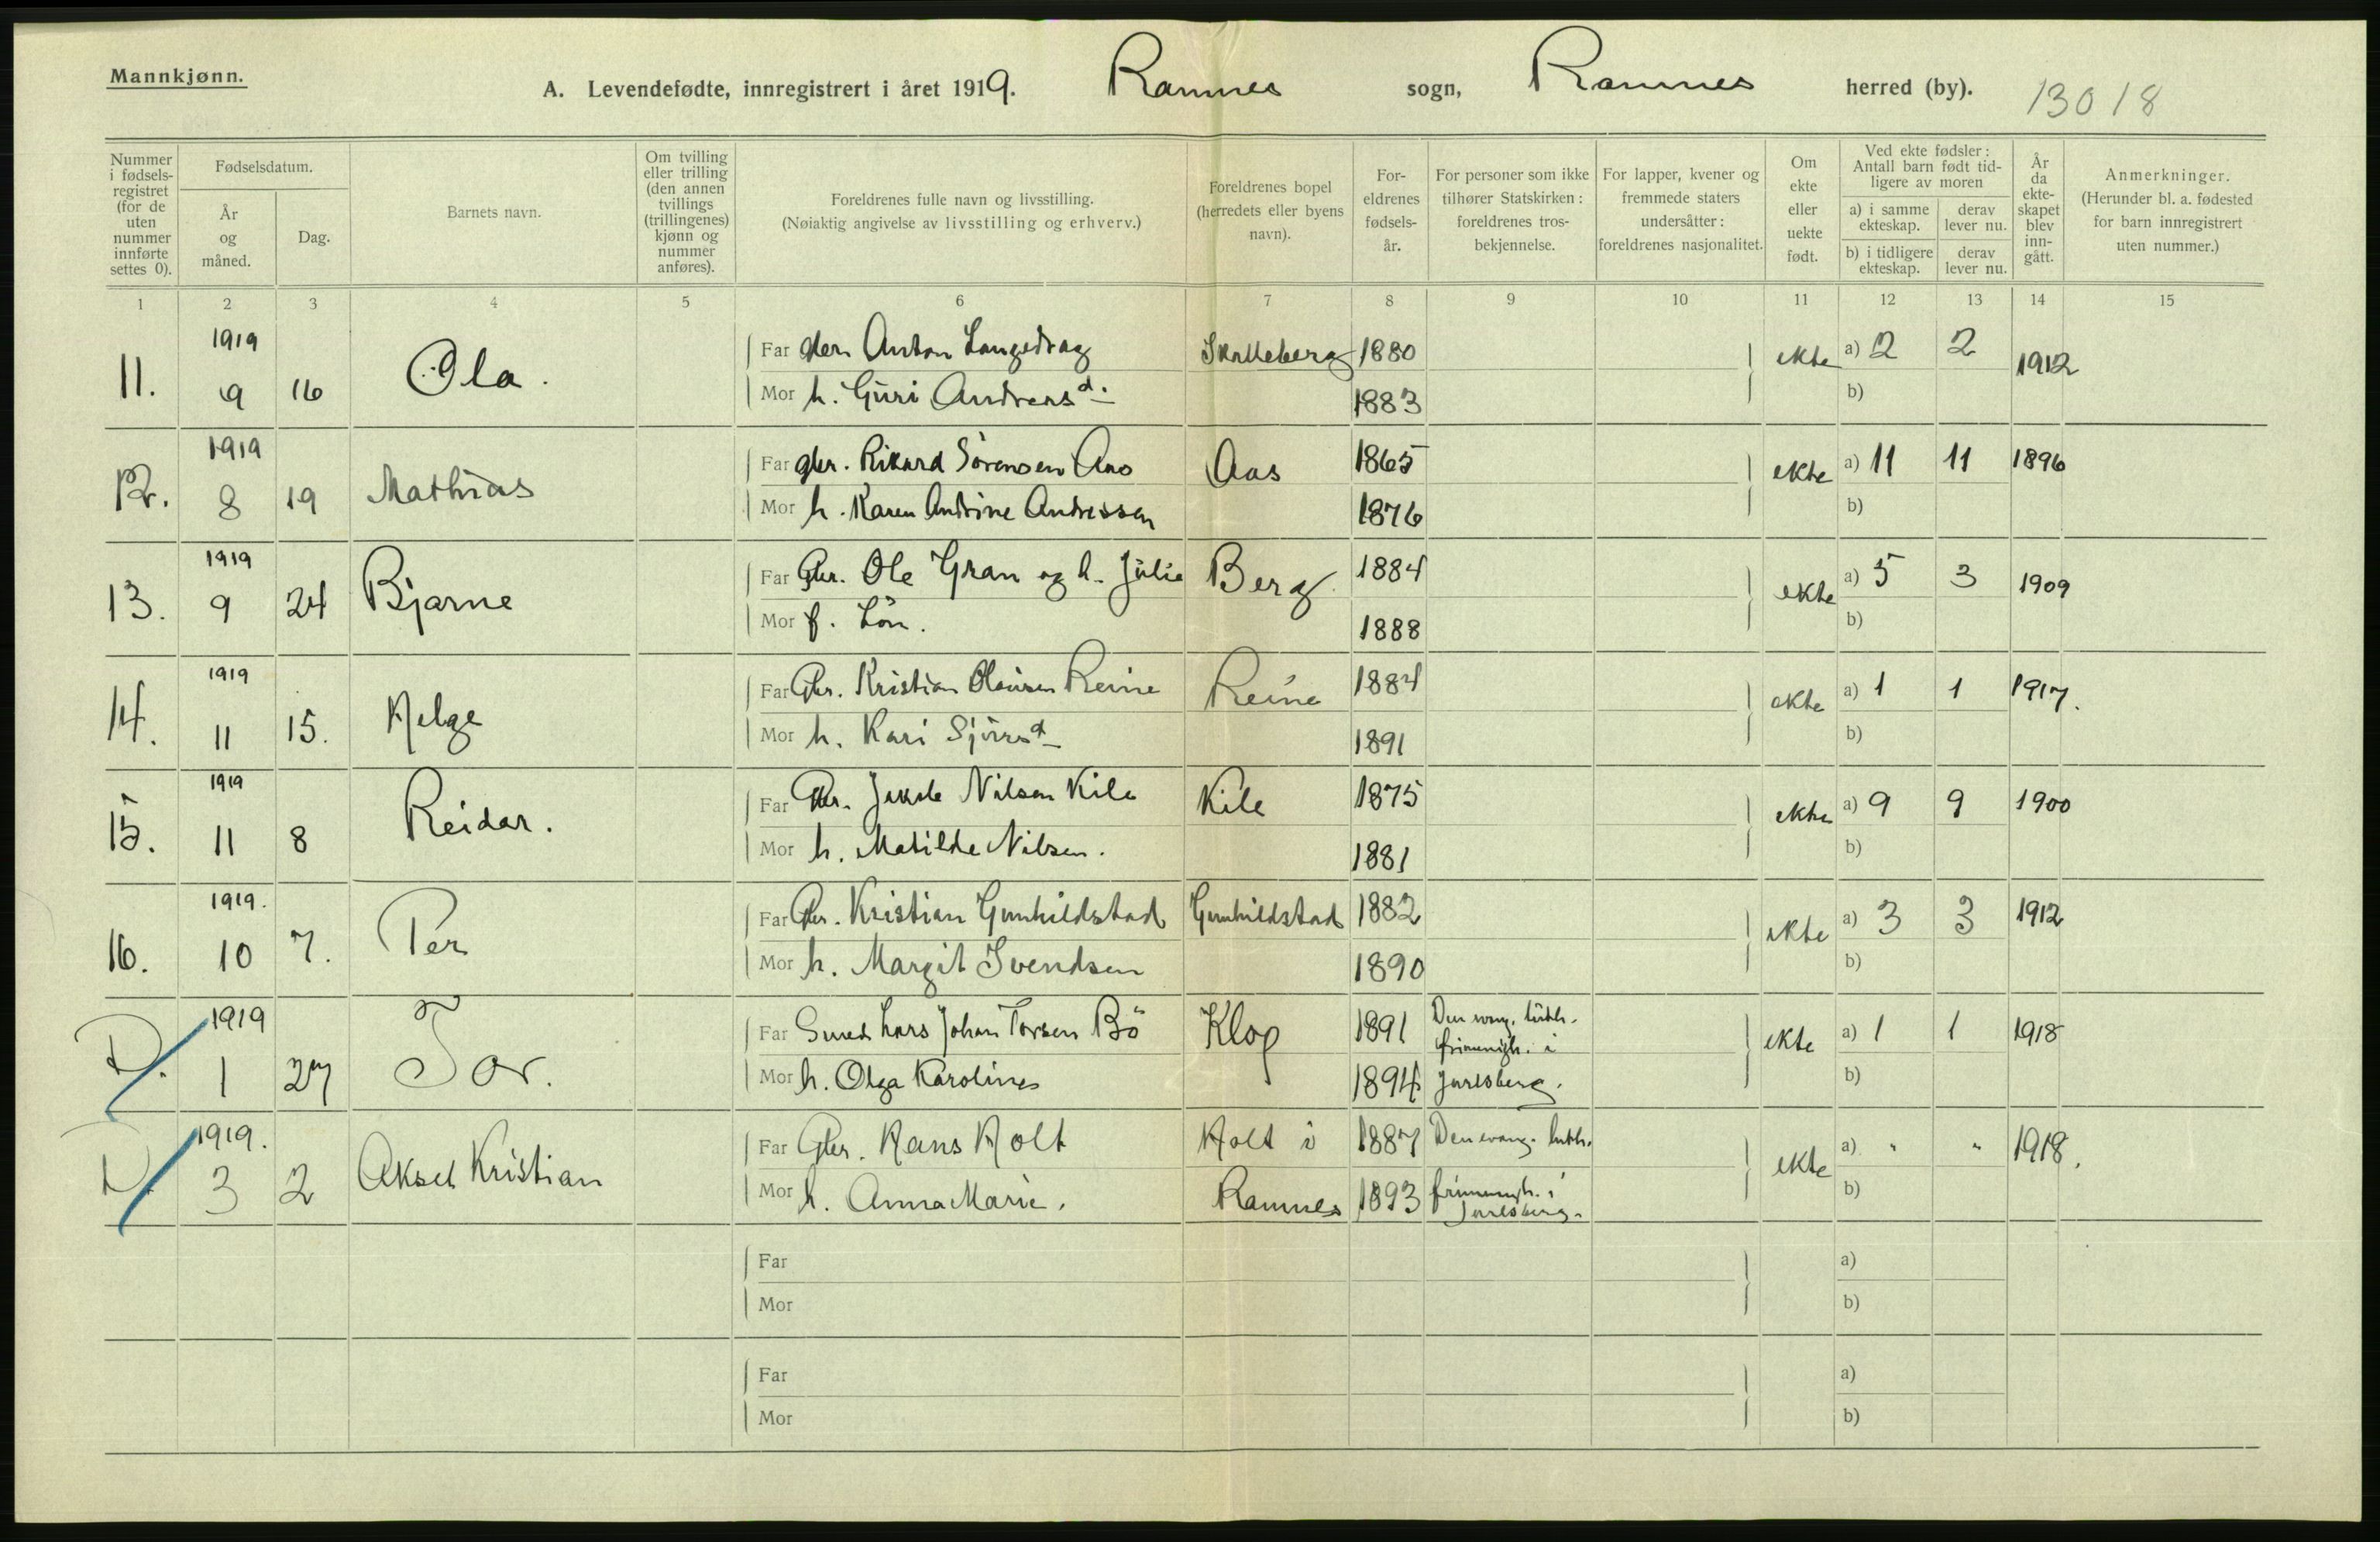 Mannkjønn.
A. Levendefødte, innregistrert i året 1919. Ramnes sogn, Ramnes herred (by). 13018
Nummer i fødselsregistret (for de uten nummer innførte settes 0).
Fødselsdatum.
År og måned.
Dag.
Barnets navn.
Om tvilling eller trilling (den annen tvillings (trillingenes) kjønn og nummer anføres).
Foreldrenes fulle navn og livsstilling.
(Nøiaktig angivelse av livsstilling og erhverv.)
Foreldrenes bopel (herredets eller byens navn).
Foreldrenes fødselsår.
For personer som ikke tilhører Statskirken: foreldrenes trosbekjennelse.
For lapper, kvener og fremmede staters undersåtter: foreldrenes nasjonalitet.
Om ekte eller uekte født.
Ved ekte fødsler: Antall barn født tidligere av moren
a) i samme ekteskap. derav lever nu.
b) i tidligere ekteskap. derav lever nu.
År da ekteskapet blev inngått.
Anmerkninger.
(Herunder bl. a. fødested for barn innregistrert uten nummer.)
1 2 3 4 5 6 7 8 9 10 11 12 13 14 15
11. 1919 9 16 Ola.
Far Anton Langedrag 1880 ekte a) 2 2 1912
Mor h. Guri Andreasd. 1883 b)
12. 1919 8 19 Mathias
Far gbr. Rikard Sörensen Aas Aas 1865 ekte a) 11 11 1896
Mor h. Karen Andrine Andressen 1876 b)
13. 1919 9 24 Bjarne
Far Gbr. Ole Gran og h. Julie Berg 1884 ekte a) 5 3 1909
Mor f. Lön. 1888 b)
14. 1919 11 15. Helge
Far Gbr. Kristian Olausen Reine Reine 1884 ekte a) 1 1 1917.
Mor h. Kari 1891 b)
15. 1919 11 8 Reidar.
Far Gbr. Nilsen Kile Kile 1875 ekte a) 9 9 1900
Mor h. Matilde Nilsen. 1881 b)
16. 1919. 10 7. Per
Far Gbr. Kristian Gunhildstad Gunhildstad 1882 ekte a) 3 3 1912
Mor h. Margit Svendsen 1890 b)
D. 1919 1 27 Tor.
Far Smed Lars Johan Torsen Bö Klop 1891 Den evang. luth. ekte a) 1 1 1918
frimenigh. i
Mor h. Olga Karolines 1894 Jarlsberg. b)
D. 1919. 3 2 Aksel Kristian
Far Gbr. Hans Holt Holt i 1887 Den evang. luth. ekte a) " " 1918.
Mor h. Anna Marie. Ramnes 1893 frimenigh. i b)
Jarlsberg.
Far a)
Mor b)
Far a)
Mor b)